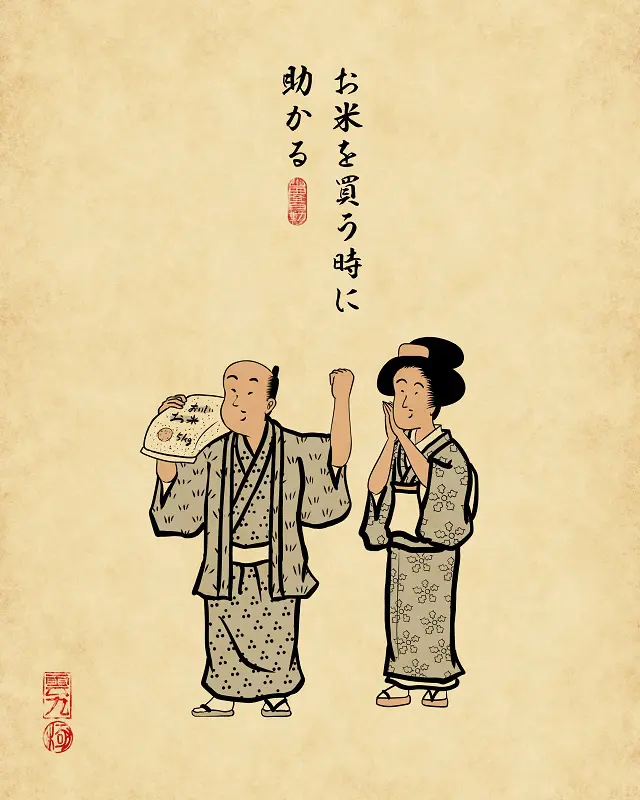 お米を買う時に
助かる
おいしい
お米
5kg